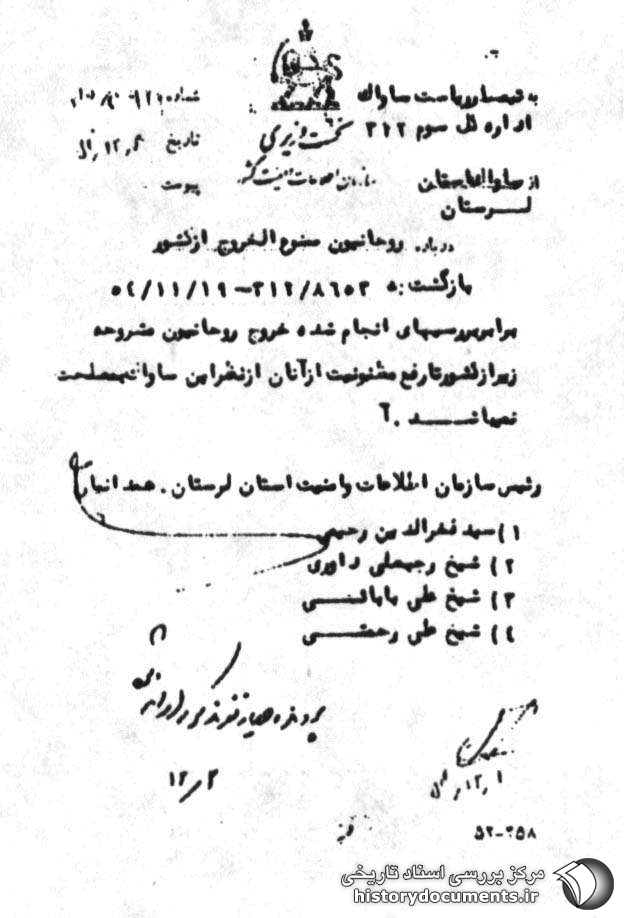 به تیمسار ریاست ساواک
اداره کل سوم ۳۱۲
نخست وزیری
سازمان اطلاعات و امنیت کشور
شماره
تاریخ
پیوست
از ساواک استان
لرستان
درباره روحانیون ممنوع الخروج از کشور
بازگشت به ۳۱۲/۸۶۵۳-۵۴/۱۱/۱۹
برابر بررسیهای انجام شده خروج روحانیون مشروحه
زیر از کشور تا رفع مظنونیت از آنان از نظر این ساواک بمصلحت
نمیباشد . آ
رئیس سازمان اطلاعات و امنیت استان لرستان .
۱) سید فخرالدین رحیمی
۲) شیخ رجبعلی داوری
۳) شیخ علی بابائی
۴) شیخ علی رحمتی
۱۲/۳
۵۲-۳۵۸
مرکز بررسی اسناد تاریخی
historydocuments.ir